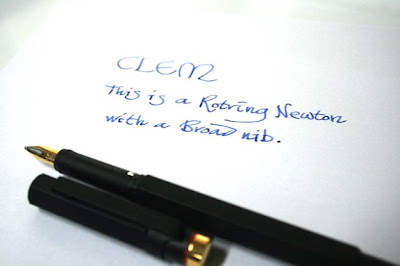 CLEM
This is a Rotring Newton
with a Broad nib.